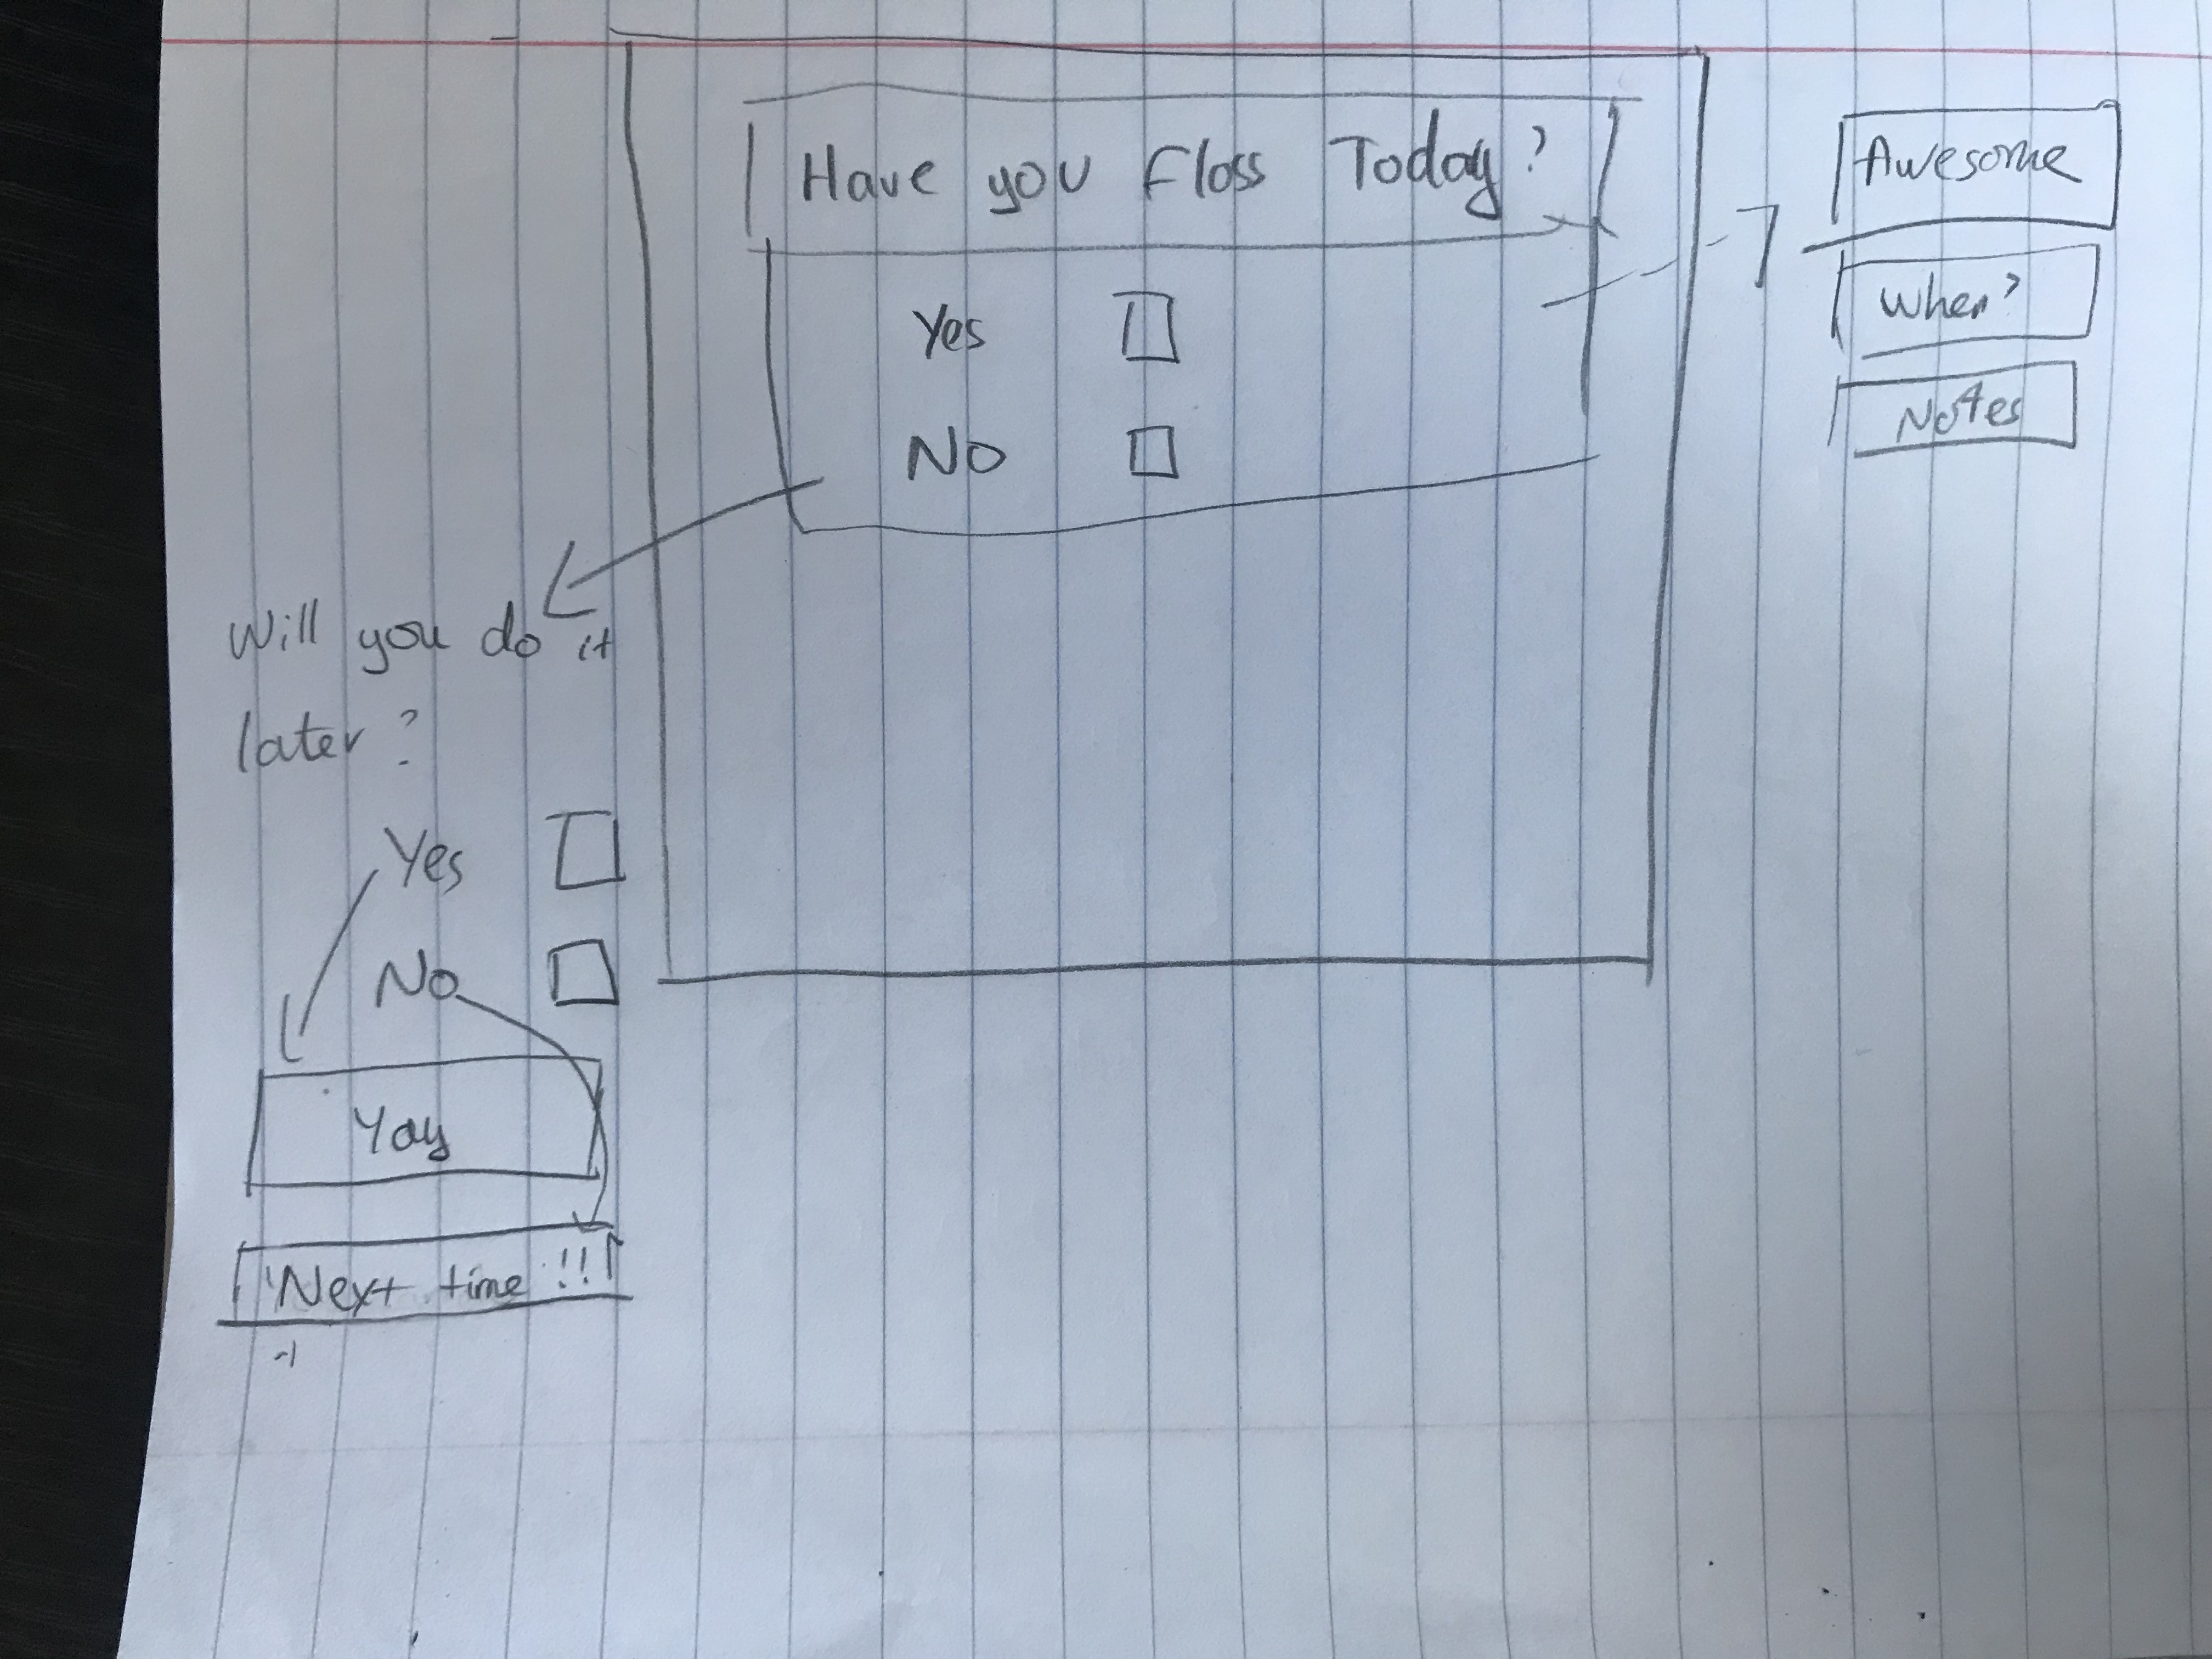 Have you Floss Today?
Yes
No
Awesome
When?
Notes
Will you do it
later?
Yes
No
Yay
Next time !!!